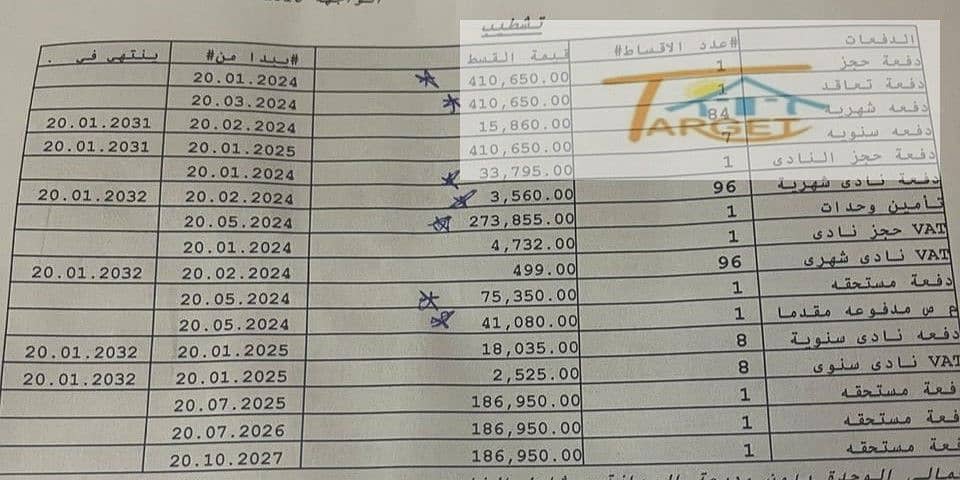 تشطيب
الدفعات #عدد الاقساط# قيمة القسط #يبدا من# ينتهي في .
دفعة حجز 1 410,650.00 20.01.2024
دفعة تعاقد 1 410,650.00 20.03.2024
دفعه شهرية 84 15,860.00 20.02.2024 20.01.2031
دفعه سنويه 7 410,650.00 20.01.2025 20.01.2031
دفعة حجز النادى 1 33,795.00 20.01.2024
دفعة نادى شهرية 96 3,560.00 20.02.2024 20.01.2032
تأمين وحدات 1 273,855.00 20.05.2024
VAT حجز نادى 1 4,732.00 20.01.2024
VAT نادى شهرى 96 499.00 20.02.2024 20.01.2032
دفعة مستحقه 1 75,350.00 20.05.2024
م ص مدفوعه مقدما 1 41,080.00 20.05.2024
دفعه نادى سنوية 8 18,035.00 20.01.2025 20.01.2032
VAT نادى سنوى 8 2,525.00 20.01.2025 20.01.2032
فعة مستحقه 1 186,950.00 20.07.2025
فعة مستحقه 1 186,950.00 20.07.2026
فعة مستحقه 1 186,950.00 20.10.2027
TARGET